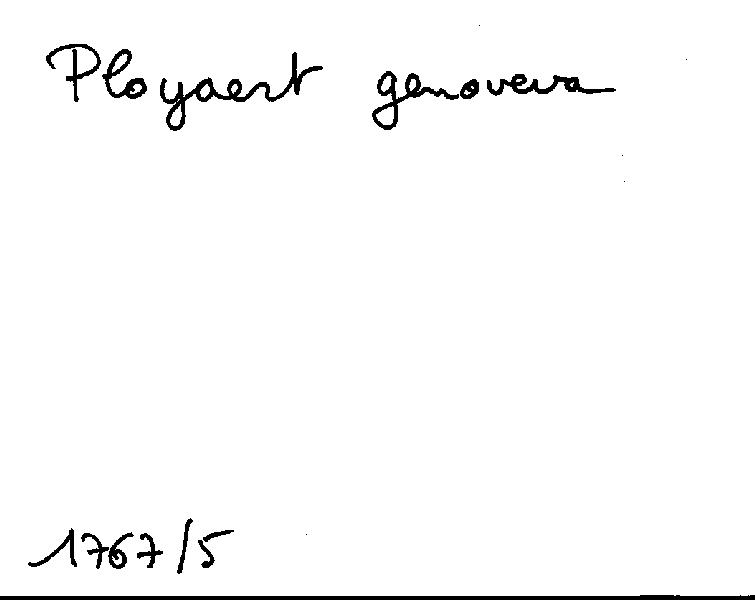 Ployaert genoveva
1767/5